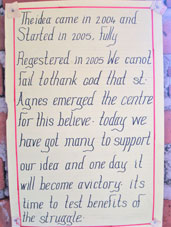 Theidea came in 2004 and
Started in 2005, Fully
Regestered in 2005 We canot
fail tothank God that st.
Agnes emerged the centre
for this believe. today we
have got many to support
our idea and one day it
will become avictory. its
time to test benefits of
the struggle.